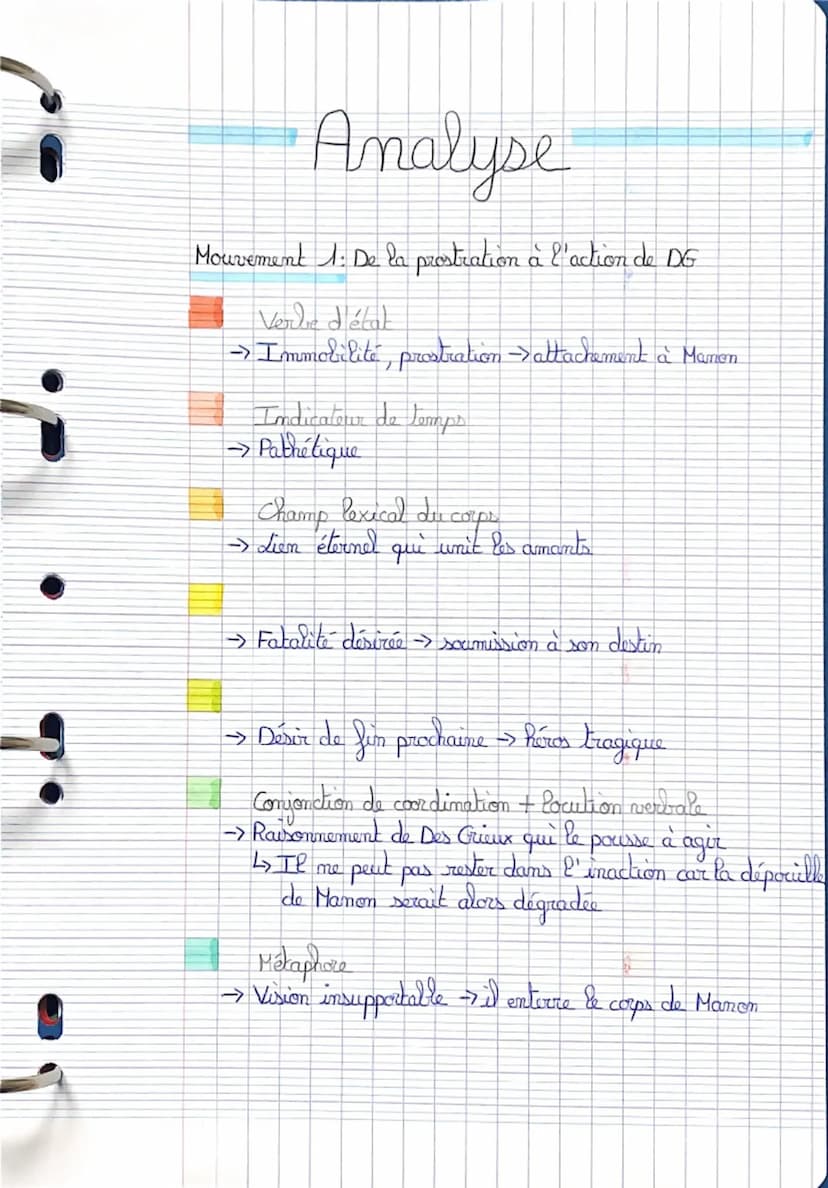 Analyse
Mouvement 1: De la prostration à l'action de DG
Verbe d'état
→ Immobilité, prostration → attachement à Manon
Indicateur de temps
→ Pathétique
Champ lexical du corps
→ Lien éternel qui unit les amants
→ Fatalité désirée → soumission à son destin
→ Désir de fin prochaine → héros tragique
Conjonction de coordination + locution verbale
→ Raisonnement de Des Grieux qui le pousse à agir
↳ Il ne peut pas rester dans l'inaction car la dépouille
de Manon serait alors dégradée
Métaphore
→ Vision insupportable → il enterre le corps de Manon